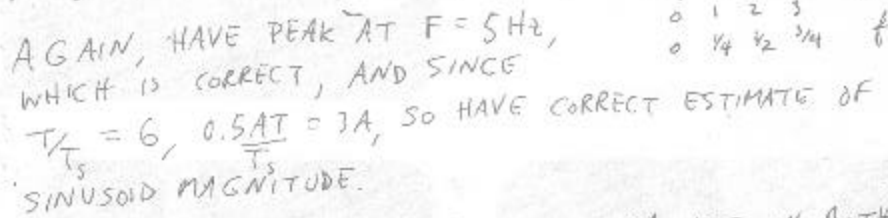 AGAIN, HAVE PEAK AT F = 5 Hz,
WHICH IS CORRECT, AND SINCE
T/Ts = 6, 0.5AT/Ts = 3A, SO HAVE CORRECT ESTIMATE OF
SINUSOID MAGNITUDE.
0 1 2 3
0 1/4 1/2 3/4